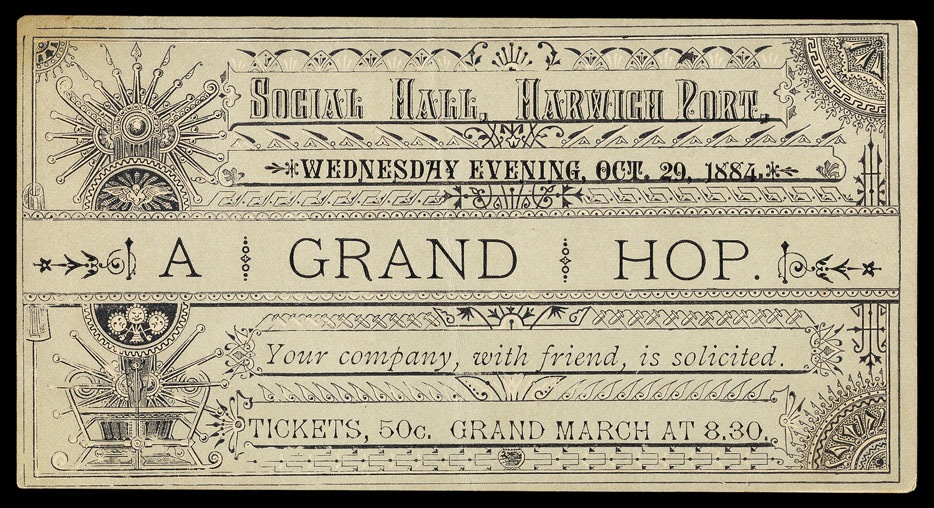 Social Hall, Harwich Port,
WEDNESDAY EVENING, OCT. 29, 1884.
A GRAND HOP.
Your company, with friend, is solicited.
TICKETS, 50c. GRAND MARCH AT 8.30.